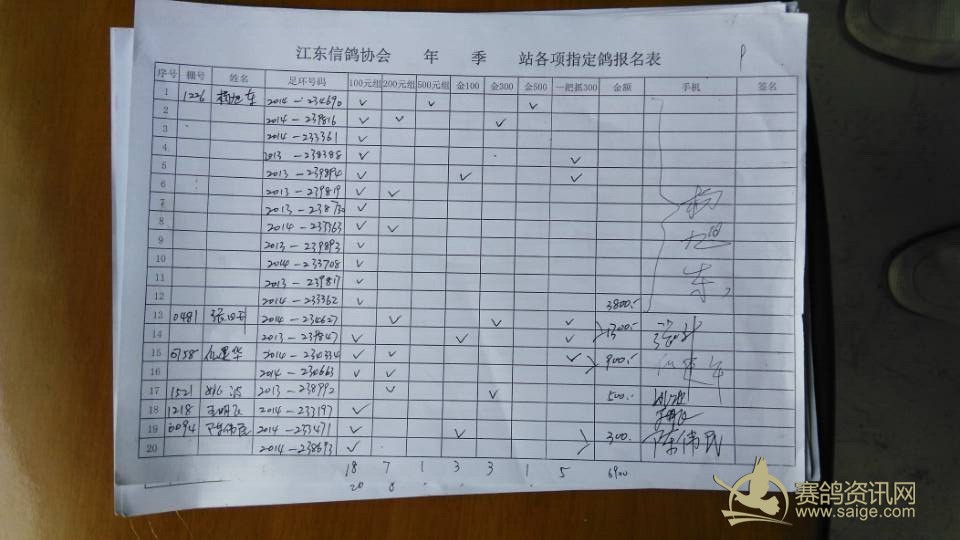 江东信鸽协会 年 季 站各项指定鸽报名表
序号 棚号 姓名 足环号码 100元组 200元组 500元组 金100 金300 金500 一把抓300 金额 手机 签名
1 1226 杨旭东 2014-234690 ✓ ✓ ✓
2 2014-239816 ✓ ✓ ✓
3 2014-233361 ✓
4 2013-238388 ✓ ✓
5 2013-239894 ✓ ✓ ✓
6 2013-239819 ✓ ✓
7 2013-238730 ✓
8 2014-233363 ✓ ✓
9 2013-239893 ✓
10 2014-233708 ✓
11 2013-239817 ✓
12 2014-233362 ✓ 3800.-
杨旭东
13 0481 2014-234627 ✓ ✓ ✓ 1300.-
14 2013-239847 ✓ ✓ ✓
15 0758 2014-230334 ✓ ✓ ✓ 900.-
16 2014-230663 ✓ ✓
17 1521 姚波 2013-238992 ✓ ✓ 500.- 姚波
18 1218 王明良 2014-233197 ✓
19 0094 陈伟民 2014-233471 ✓ ✓ 300. 陈伟民
20 2014-238693 ✓
18 7 1 3 3 1 5 6900
20 8
P
赛鸽资讯网
www.saige.com